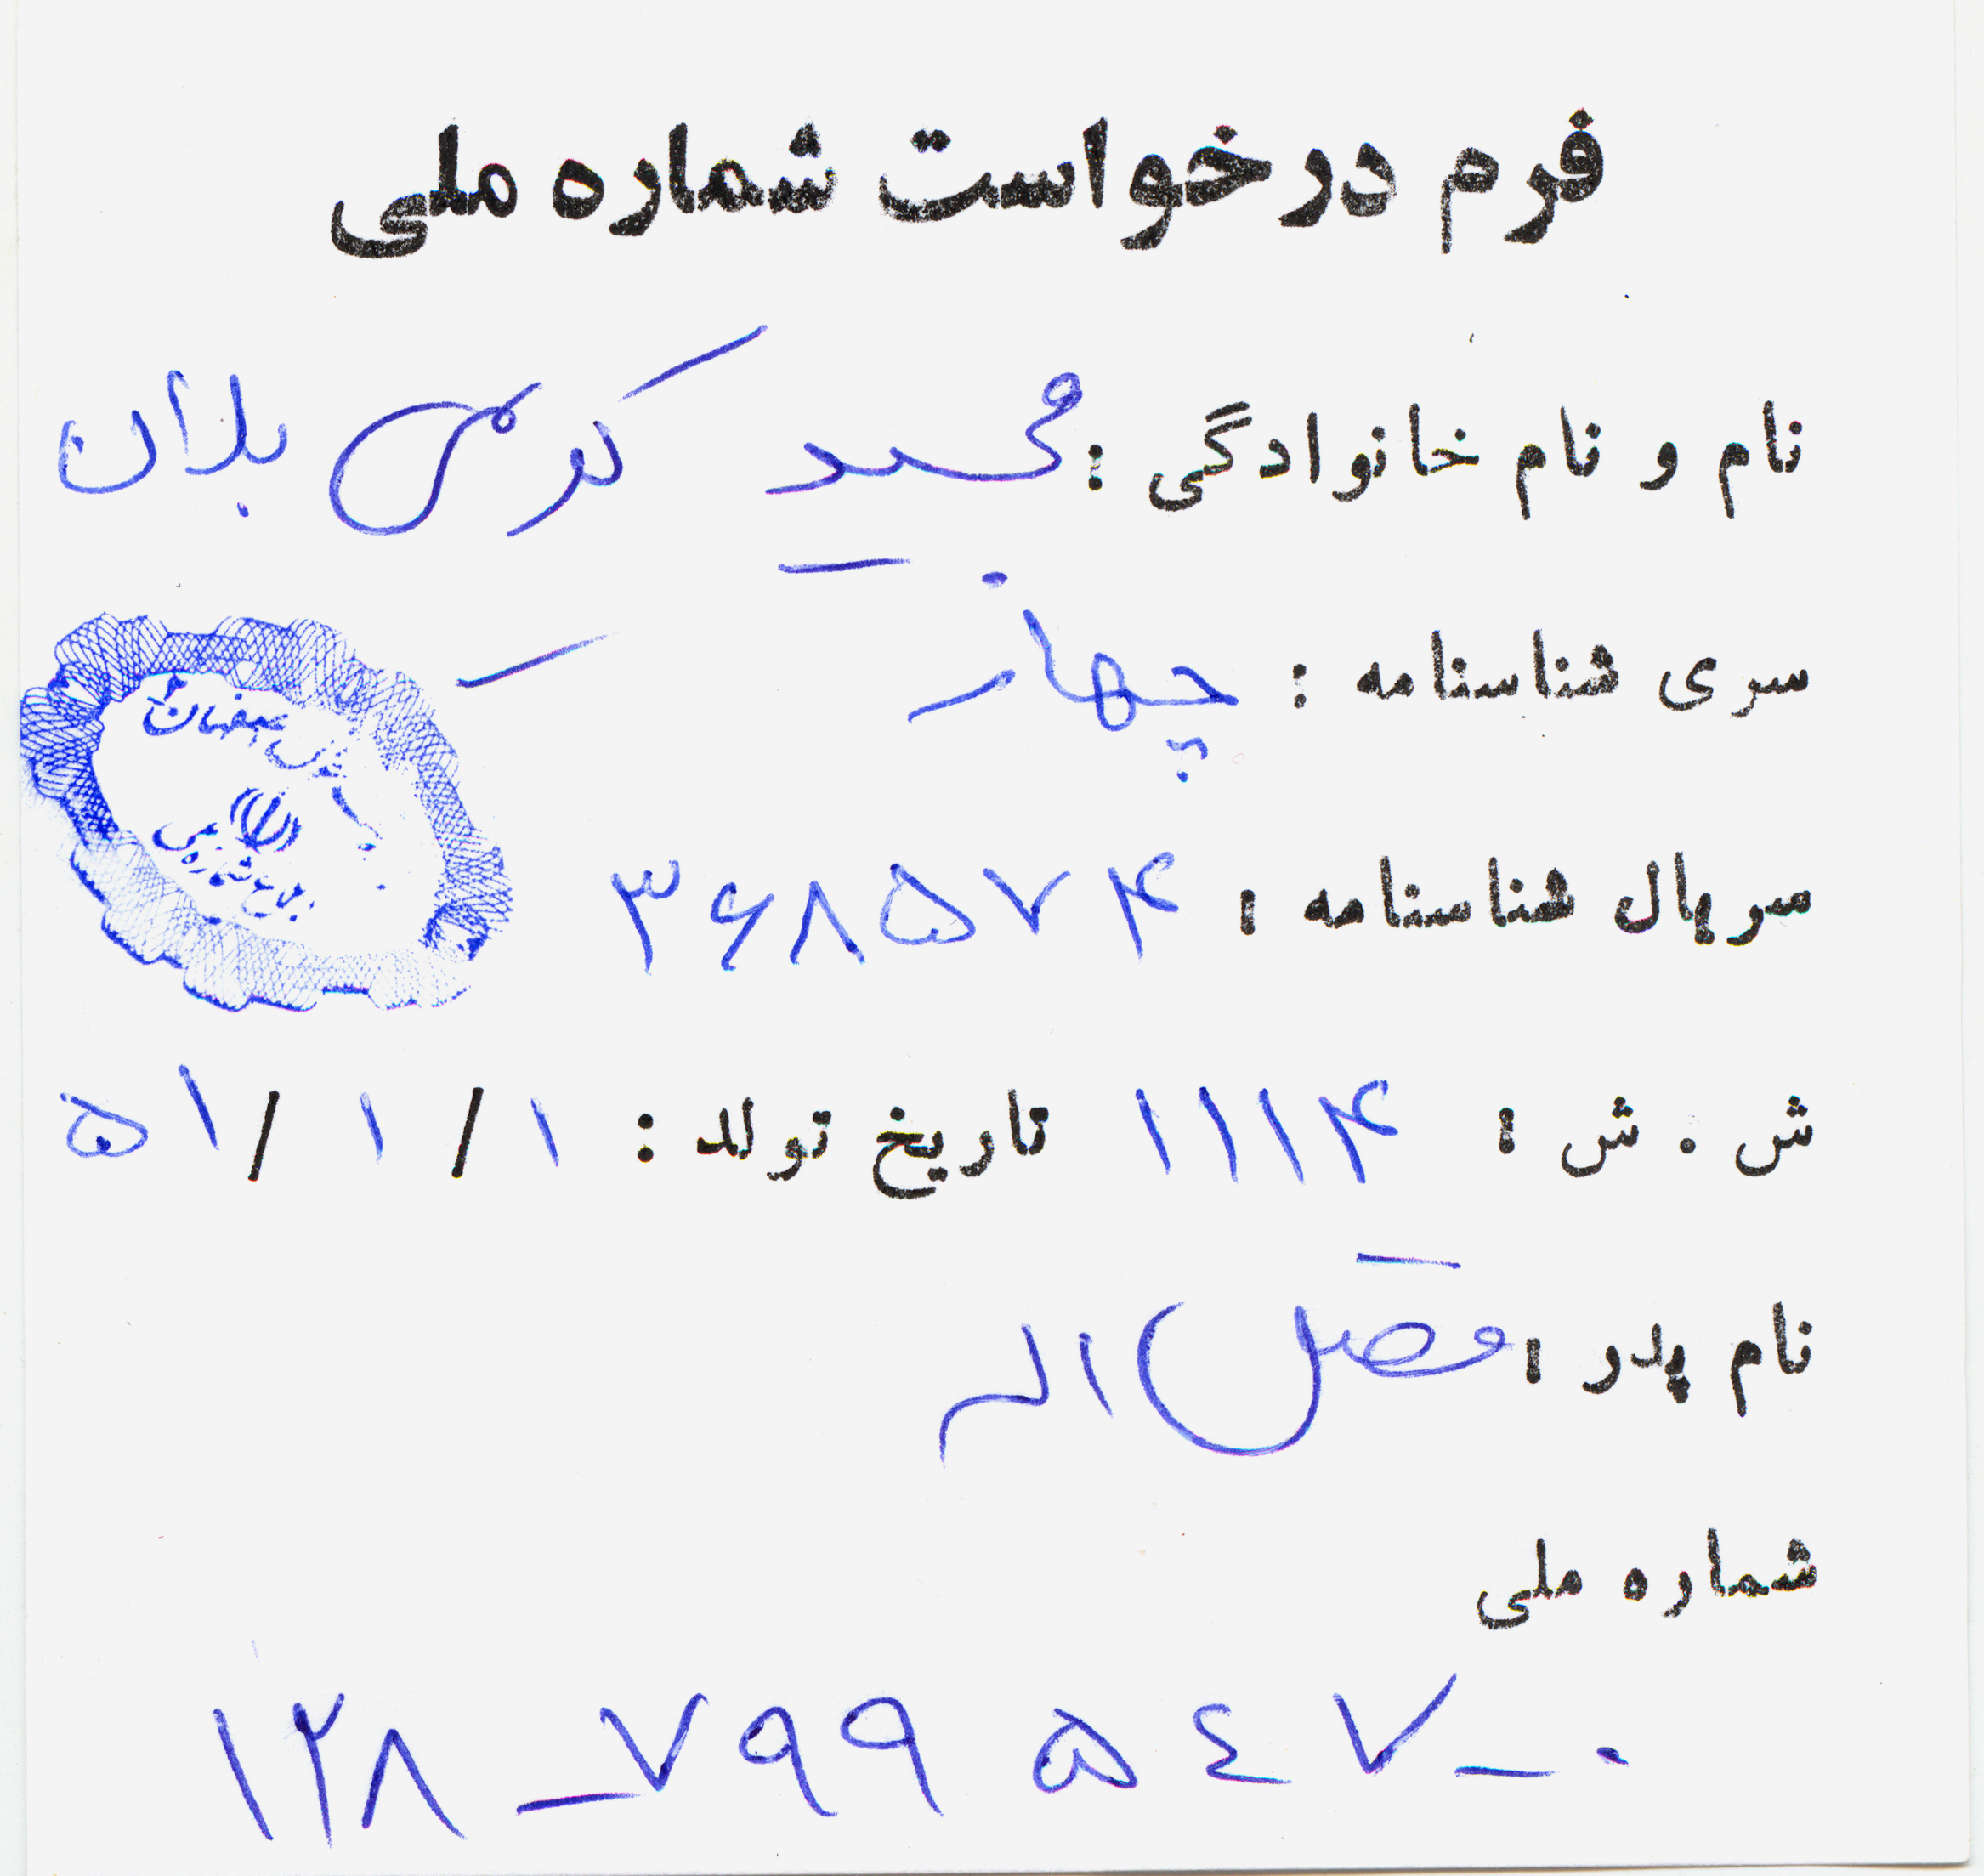 فرم درخواست شماره ملی
نام و نام خانوادگی : مجید کرمی بلدان
سری شناسنامه : چهار
سریال شناسنامه : ۳۶۸۵۷۴
ش . ش : ۱۱۱۴ تاریخ تولد : ۱ / ۱ / ۵۱
نام پدر : فضل اله
شماره ملی
۱۲۸_۷۹۹۵٤۷_۰